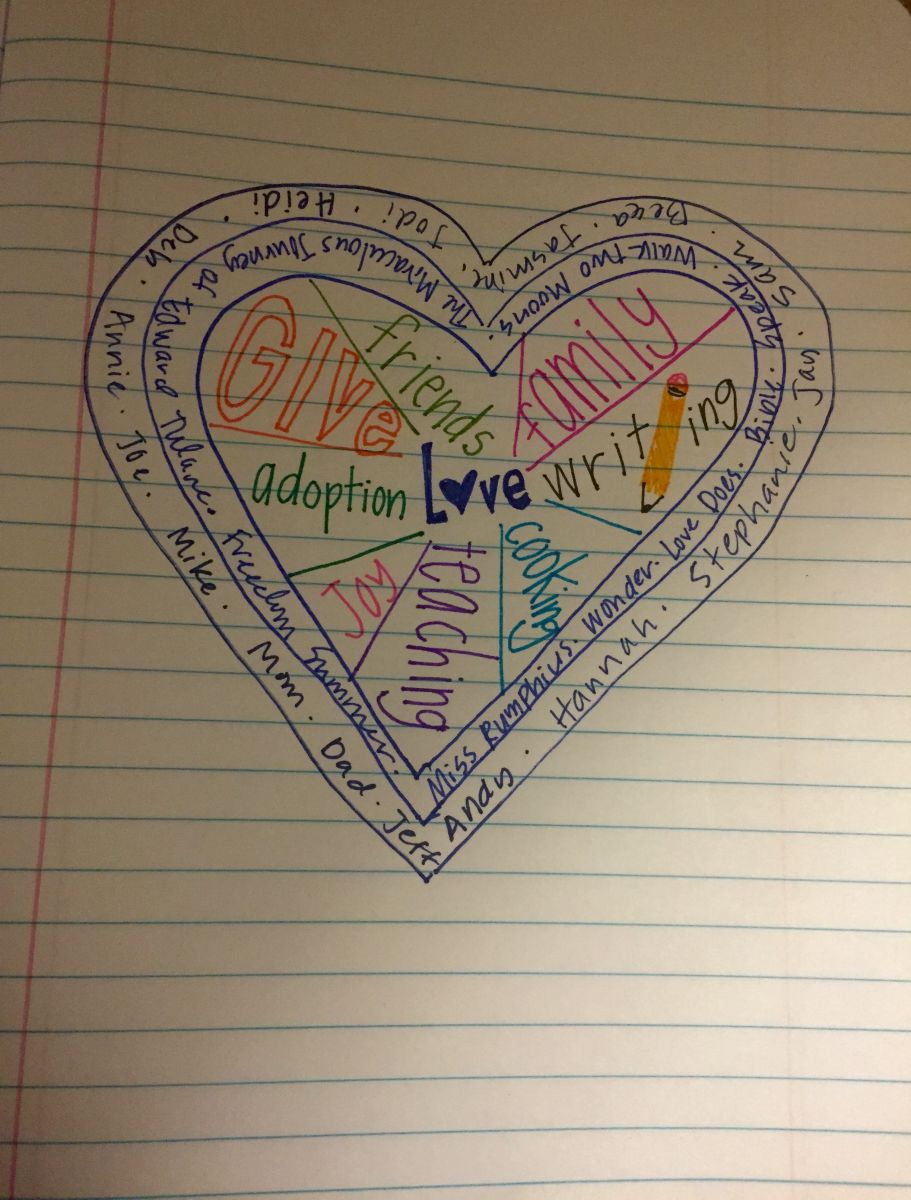 Jodi · Heidi · Deb · Annie · Joe · Mike · Mom · Dad · Jeff.
Andy · Hannah · Stephanie · Jay · Sam · Beca · Jasmine.
The Miraculous Journey of Edward Tulane. Freedom Summer.
Miss Rumphius. Wonder. Love Does. Bible. Speak. Walk Two Moons.
Give
friends
family
writing
adoption
Love
Joy
teaching
cooking